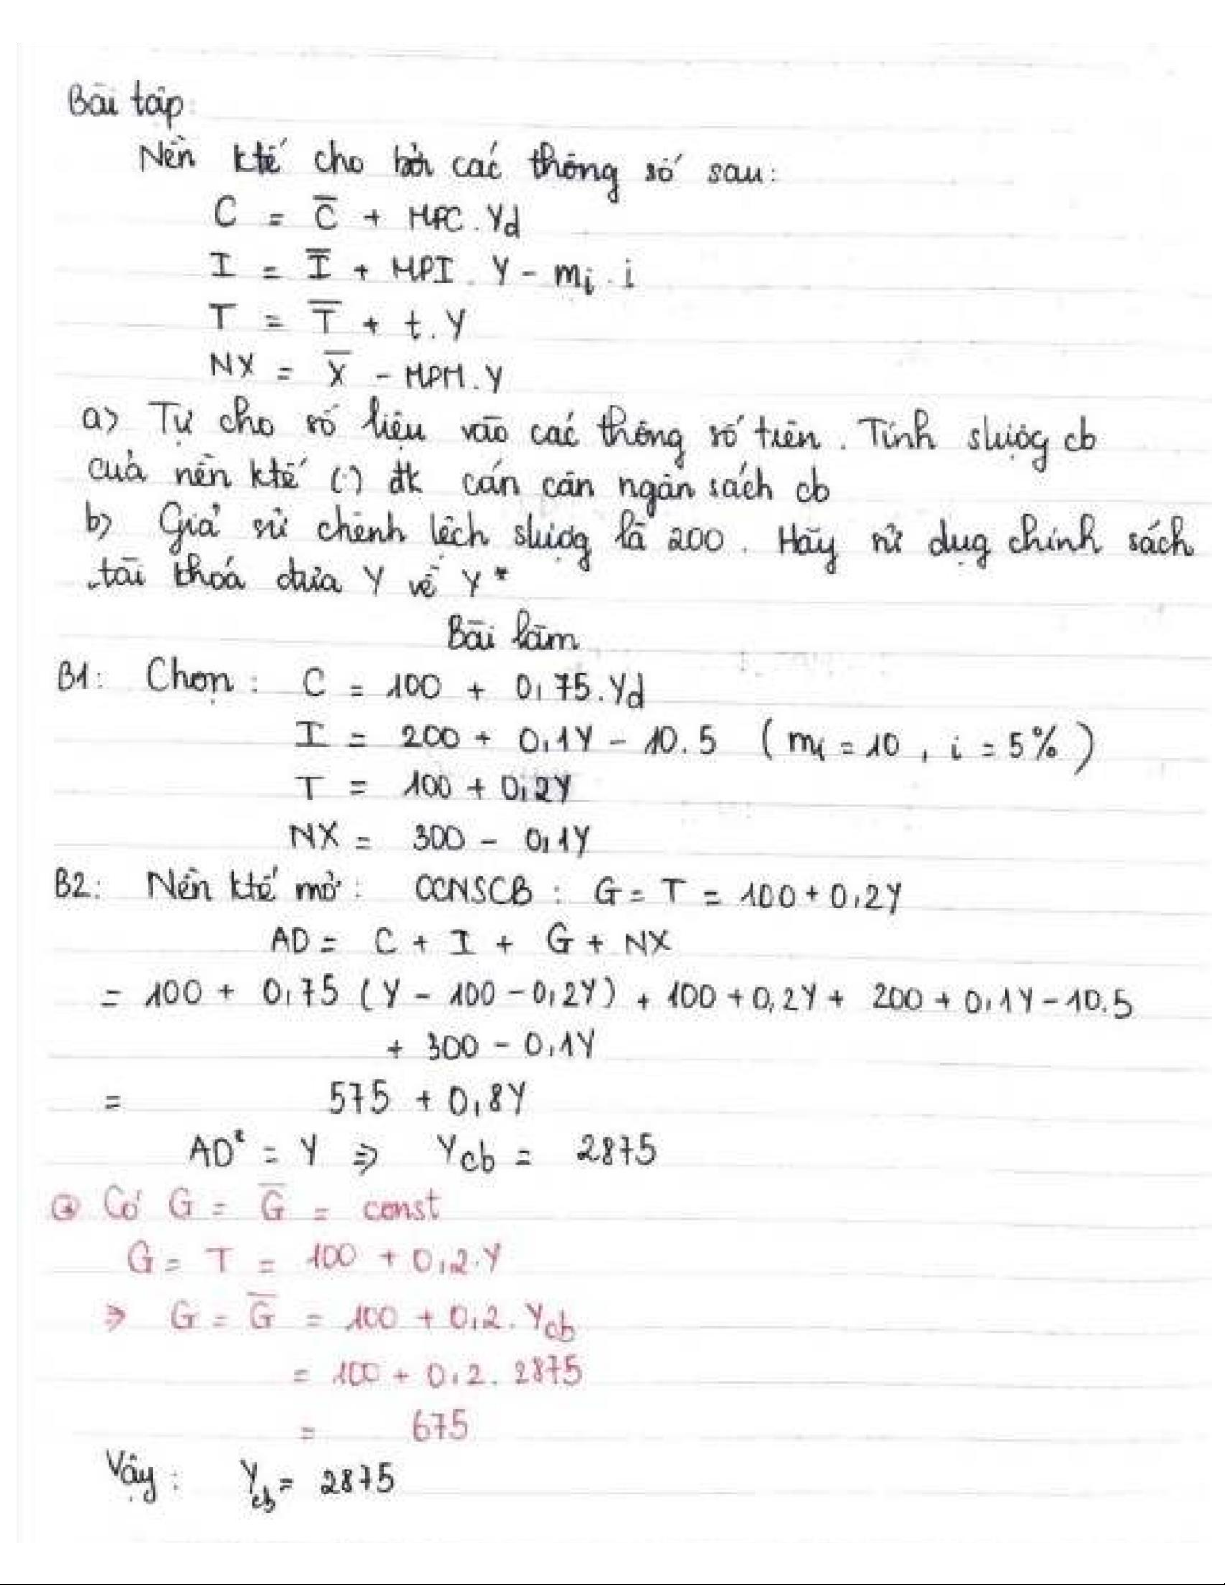 Bài tập:
Nền ktế cho bởi các thông số sau:
C = C̅ + MPC.Yd
I = I̅ + MPI.Y - mi.i
T = T̅ + t.Y
NX = X̅ - MPM.Y
a) Tự cho số liệu vào các thông số trên. Tính slượg cb
của nền ktế (.) đk cán cân ngân sách cb
b) Giả sử chênh lệch slượg là 200. Hãy sử dụg chính sách
tài khoá đưa Y về Y*
Bài làm
B1: Chọn: C = 100 + 0,75.Yd
I = 200 + 0,1Y - 10.5 (mi = 10, i = 5%)
T = 100 + 0,2Y
NX = 300 - 0,1Y
B2: Nền ktế mở: CCNSCB: G = T = 100 + 0,2Y
AD = C + I + G + NX
= 100 + 0,75 (Y - 100 - 0,2Y) + 100 + 0,2Y + 200 + 0,1Y - 10.5
+ 300 - 0,1Y
= 575 + 0,8Y
AD = Y ⇒ Ycb = 2875
Có G = G̅ = const
G = T = 100 + 0,2.Y
⇒ G = G̅ = 100 + 0,2.Ycb
= 100 + 0,2.2875
= 675
Vậy: Ycb = 2875